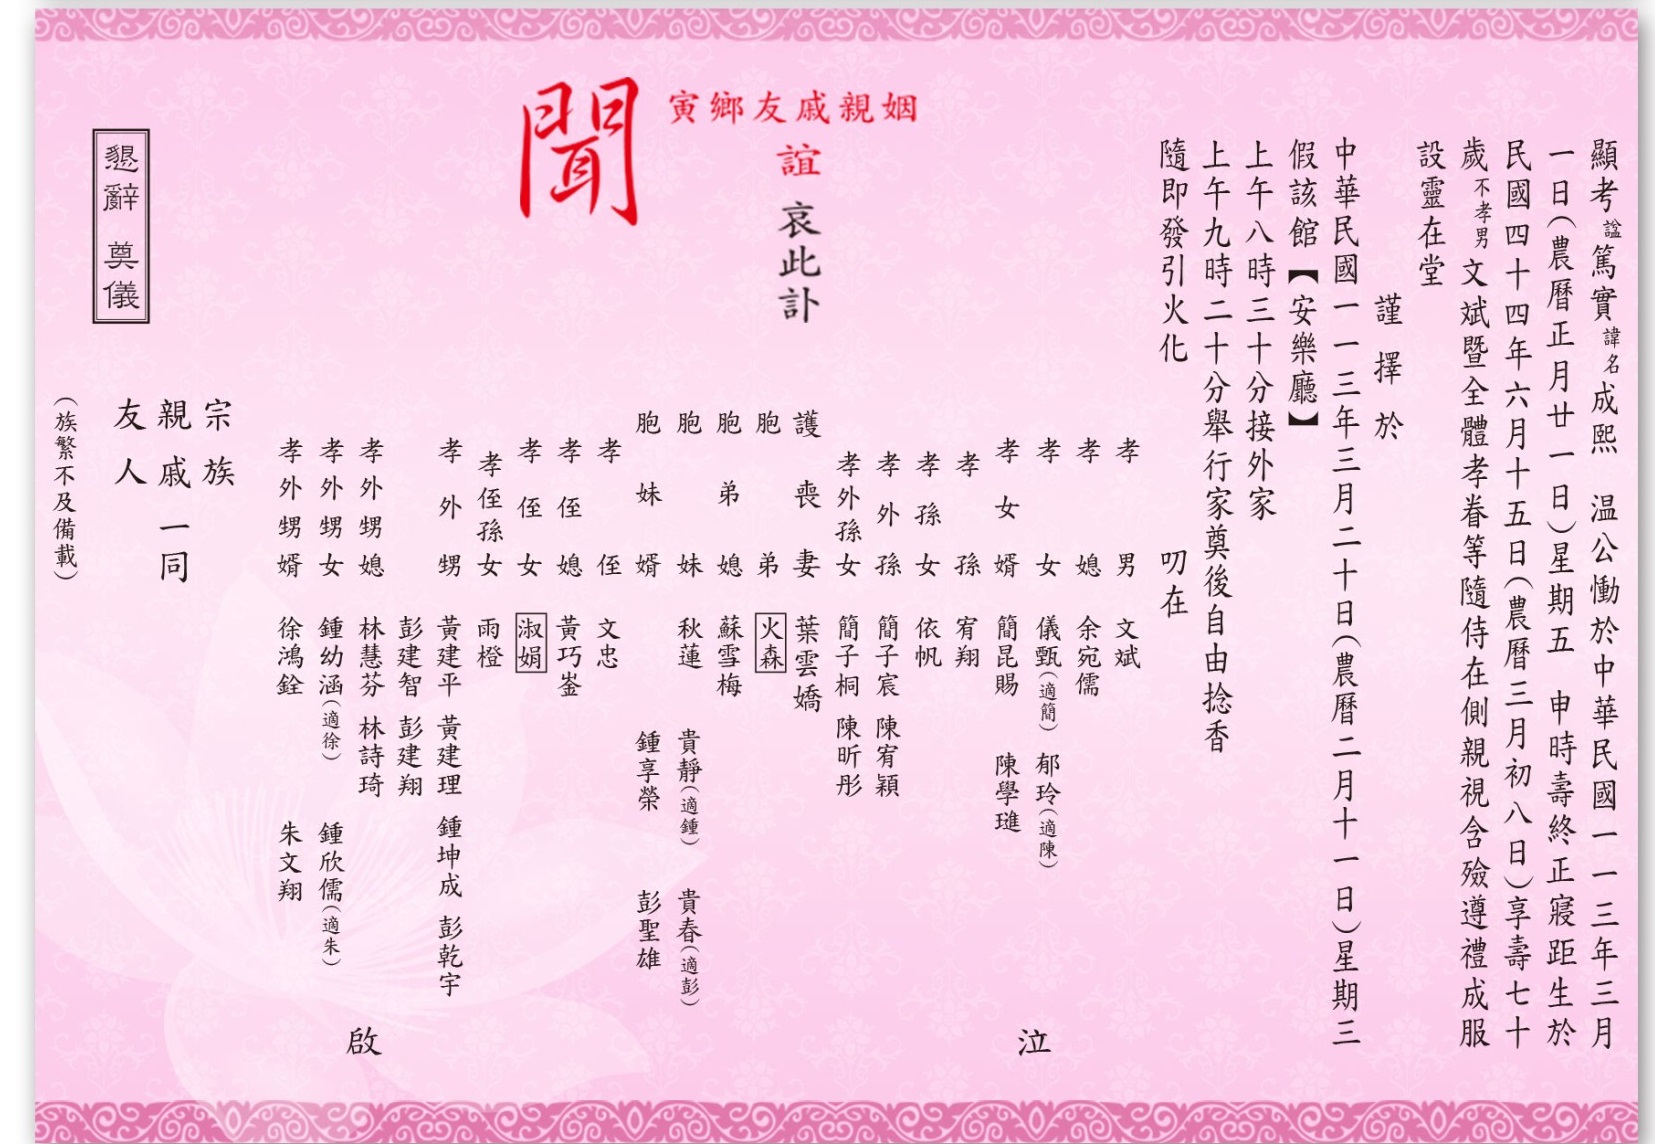 顯考諡篤實諱名成熙　温公慟於中華民國一一三年三月
一日（農曆正月廿一日）星期五　申時壽終正寢距生於
民國四十四年六月十五日（農曆三月初八日）享壽七十
歲不孝男文斌暨全體孝眷等隨侍在側親視含殮遵禮成服
設靈在堂
謹擇於
中華民國一一三年三月二十日（農曆二月十一日）星期三
假該館【安樂廳】
上午八時三十分接外家
上午九時二十分舉行家奠後自由捻香
隨即發引火化
叨在
姻親戚友鄉寅
誼
哀此訃
聞
孝男　文斌
孝媳　余宛儒
孝女　儀甄（適簡）　郁玲（適陳）
孝女婿　簡昆賜　陳學璡
孝孫　宥翔
孝孫女　依帆
孝外孫　簡子宸　陳宥穎
孝外孫女　簡子桐　陳昕彤
護喪妻　葉雲嬌
胞弟　火森
胞弟媳　蘇雪梅
胞妹　秋蓮　貴靜（適鍾）　貴春（適彭）
胞妹婿　鍾享榮　彭聖雄
孝侄　文忠
孝侄媳　黃巧崟
孝侄女　淑娟
孝侄孫女　雨橙
孝外甥　黃建平　黃建理　鍾坤成　彭乾宇
彭建智　彭建翔
孝外甥媳　林慧芬　林詩琦
孝外甥女　鍾幼涵（適徐）　鍾欣儒（適朱）
孝外甥婿　徐鴻銓　朱文翔
泣
啟
宗族
親戚一同
友人
（族繁不及備載）
懇辭　奠儀